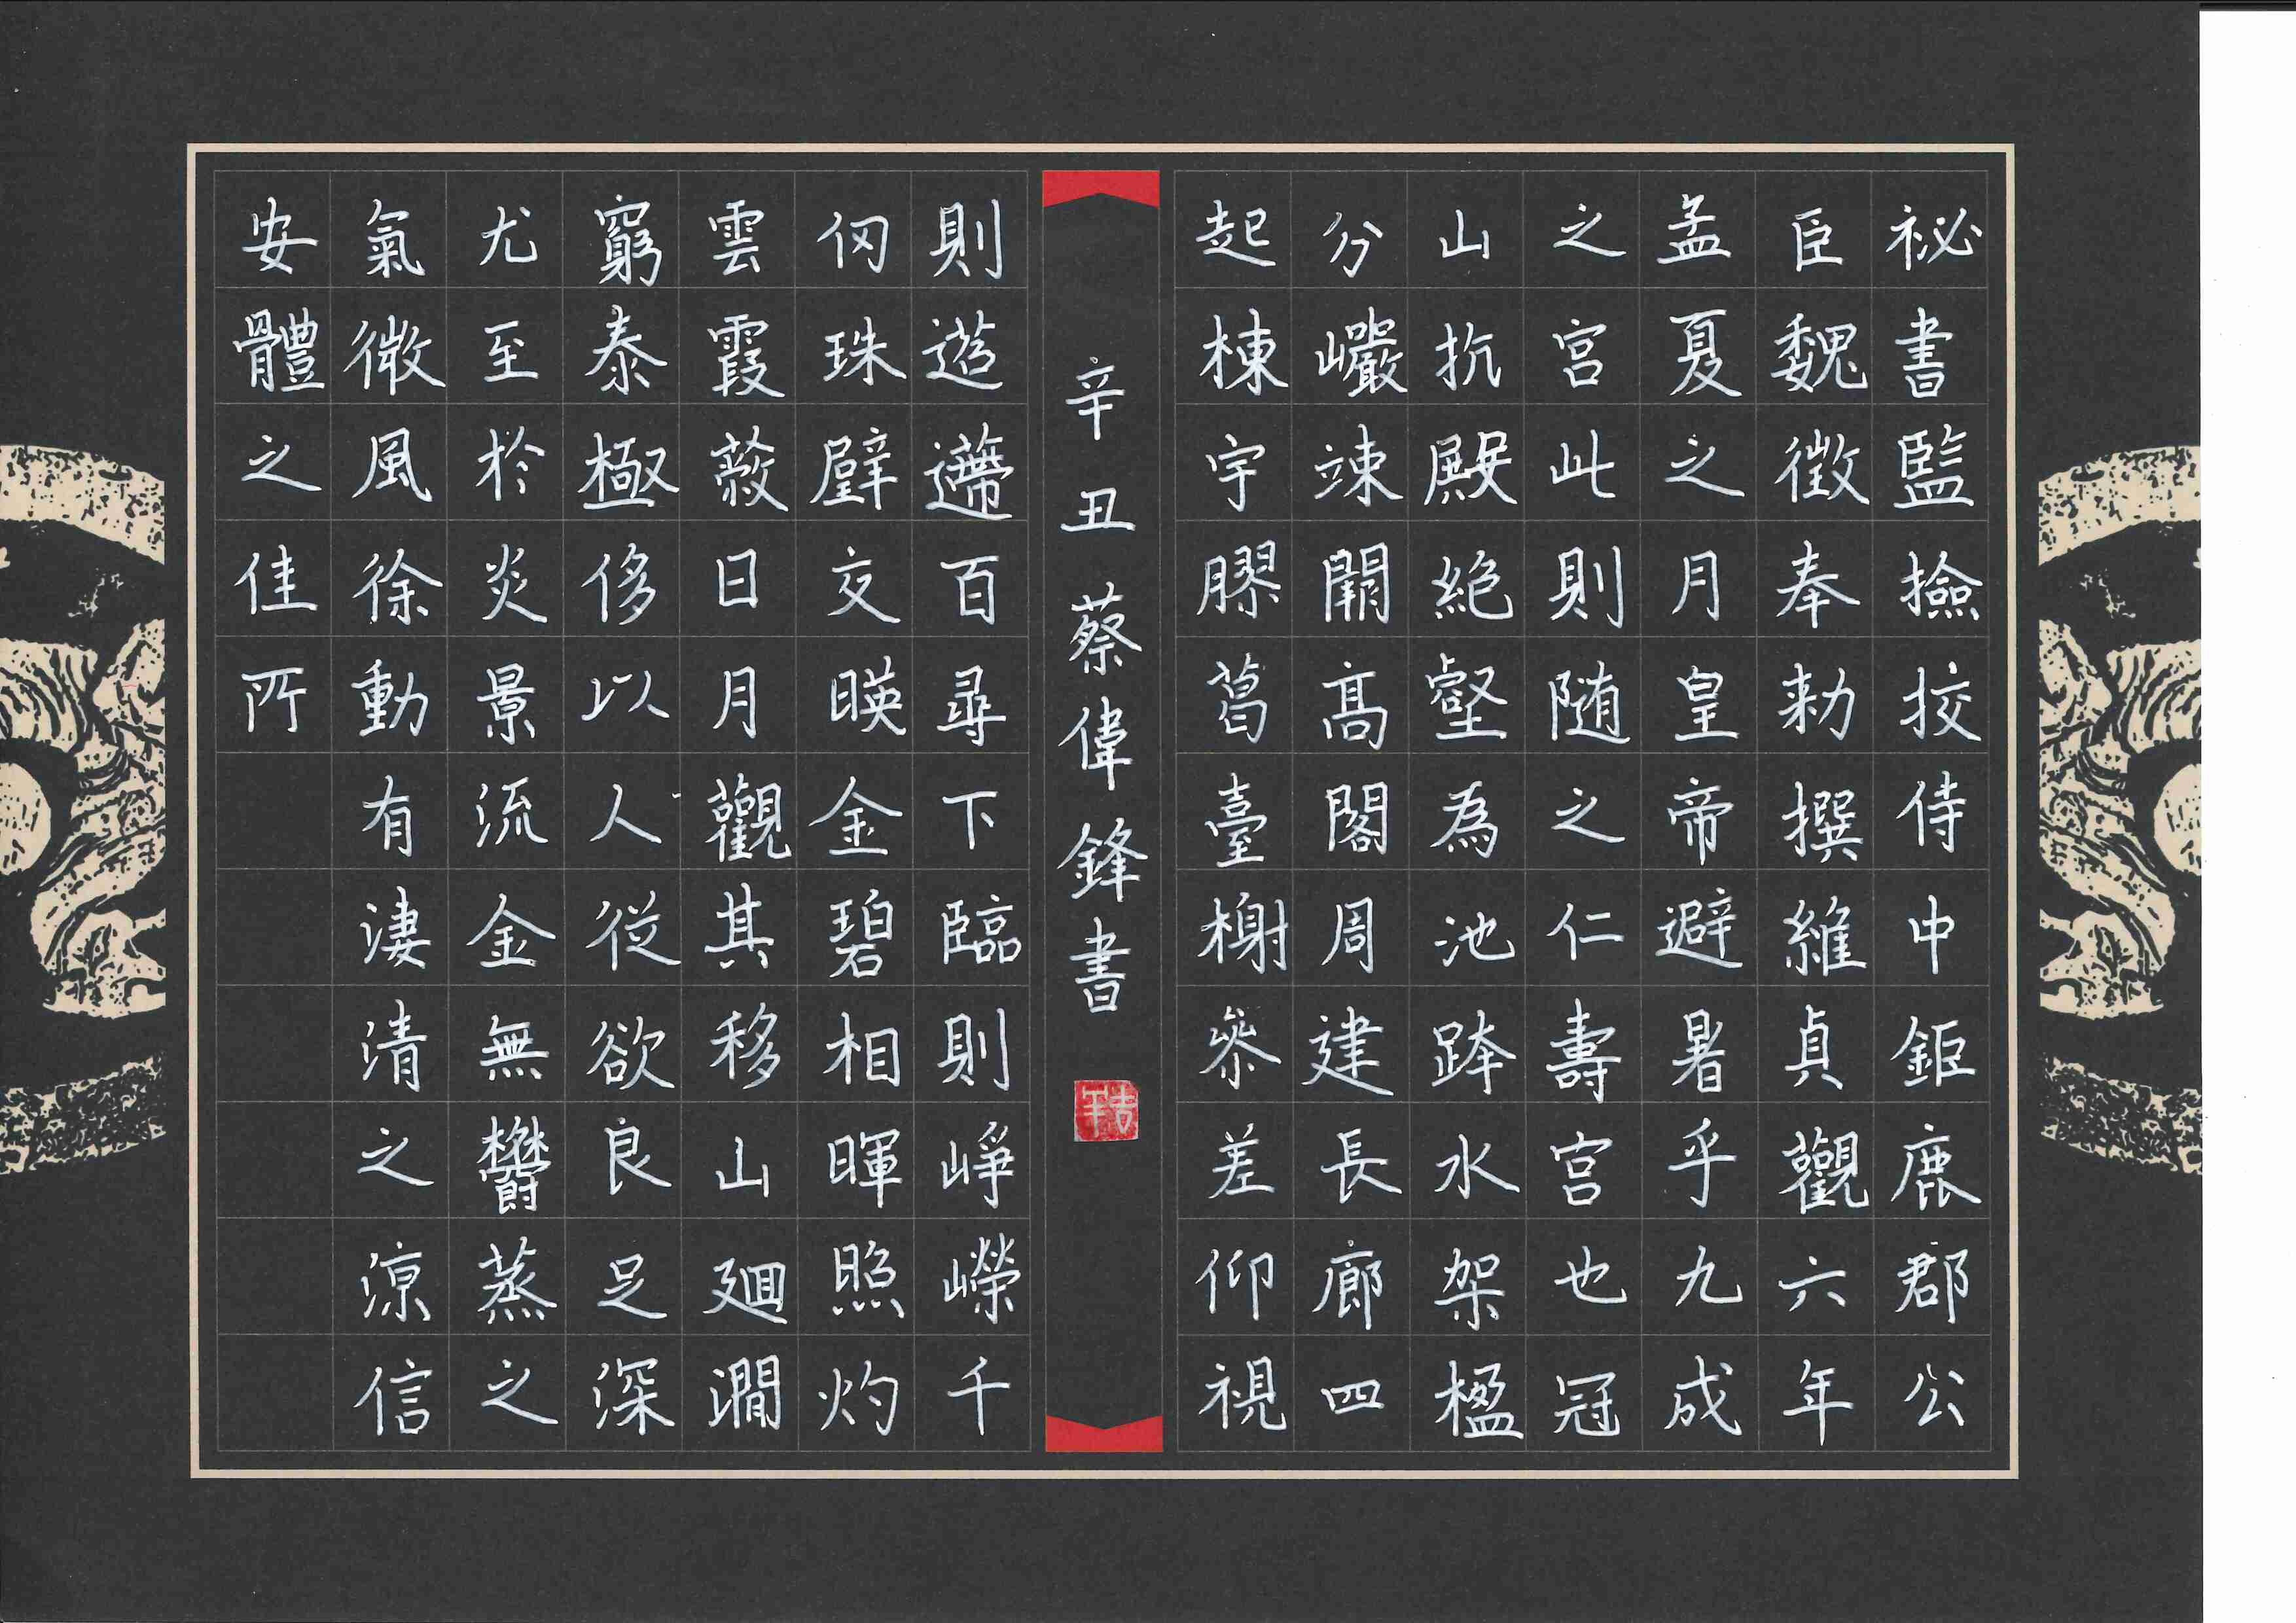 祕書監撿挍侍中鉅鹿郡公
臣魏徵奉勑撰維貞觀六年
孟夏之月皇帝避暑乎九成
之宫此則随之仁壽宫也冠
山抗殿絶壑為池跨水架楹
分巖竦闕高閣周建長廊四
起棟宇膠葛臺榭叅差仰視
辛丑蔡偉鋒書
則迢遰百尋下臨則崢嶸千
仞珠璧交暎金碧相暉照灼
雲霞蔽日月觀其移山廻澗
窮泰極侈以人從欲良足深
尤至於炎景流金無鬱蒸之
氣微風徐動有淒清之涼信
安體之佳所